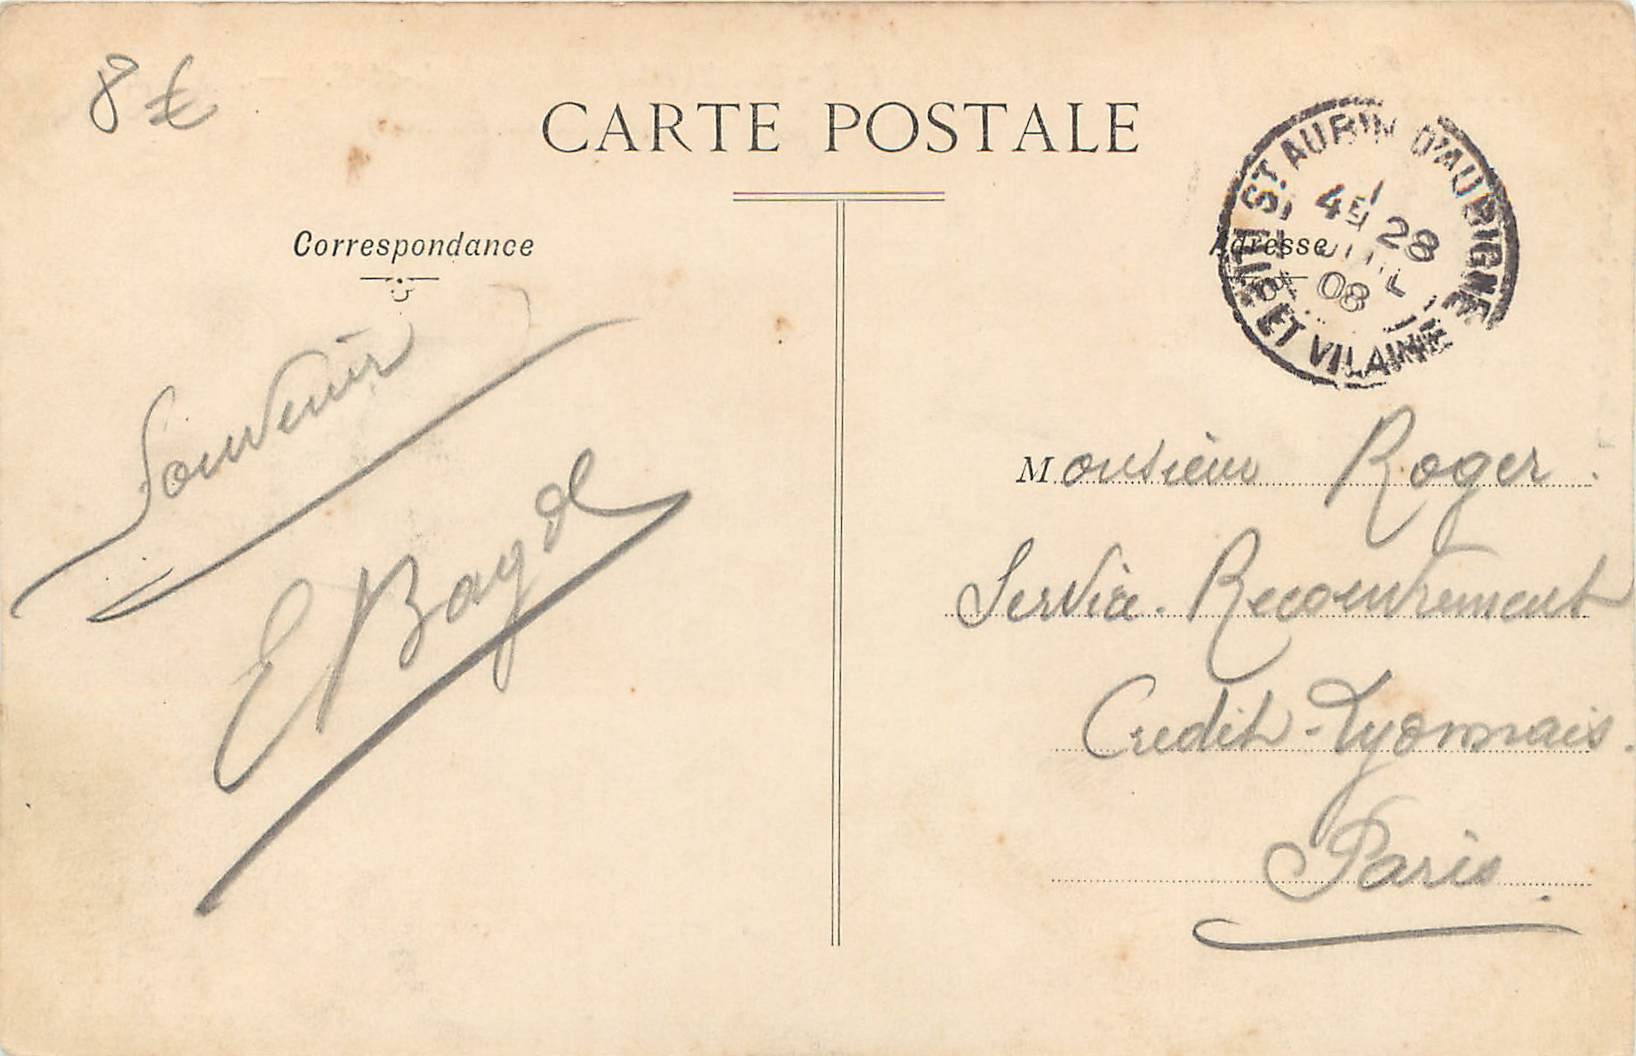 8 €
CARTE POSTALE
Correspondance
Adresse
ST AUBIN D'AUBIGNE
ILLE ET VILAINE
4E 28
JUIL
08
Souvenir
E Bayd
Monsieur Roger
Service. Recouvrement
Credit-Lyonnais.
Paris.